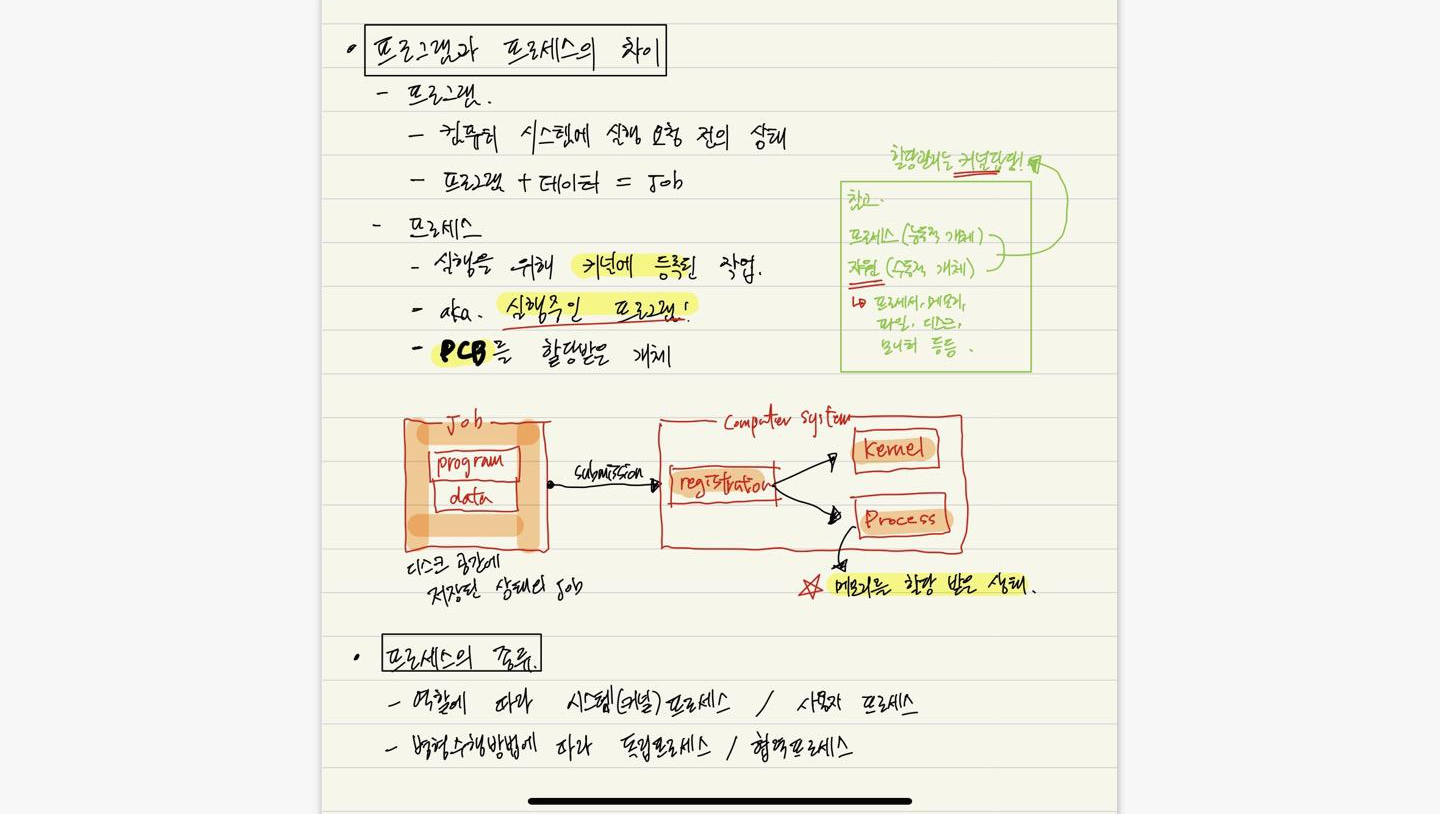 • 프로그램과 프로세스의 차이
- 프로그램.
- 컴퓨터 시스템에 실행 요청 전의 상태
- 프로그램 + 데이터 = Job
- 프로세스
- 실행을 위해 커널에 등록된 작업.
- aka. 실행중인 프로그램!
- PCB를 할당받은 개체
할당관리는 커널담당!
참고.
프로세스 (능동적 개체)
자원 (수동적 개체)
↳ 프로세서, 메모리,
파일, 디스크,
모니터 등등.
Job
program
data
submission
Computer system
registration
Kernel
Process
디스크 공간에
저장된 상태의 Job
☆ 메모리를 할당 받은 상태.
• 프로세스의 종류.
- 역할에 따라 시스템(커널)프로세스 / 사용자 프로세스
- 병형수행방법에 따라 독립프로세스 / 협력프로세스